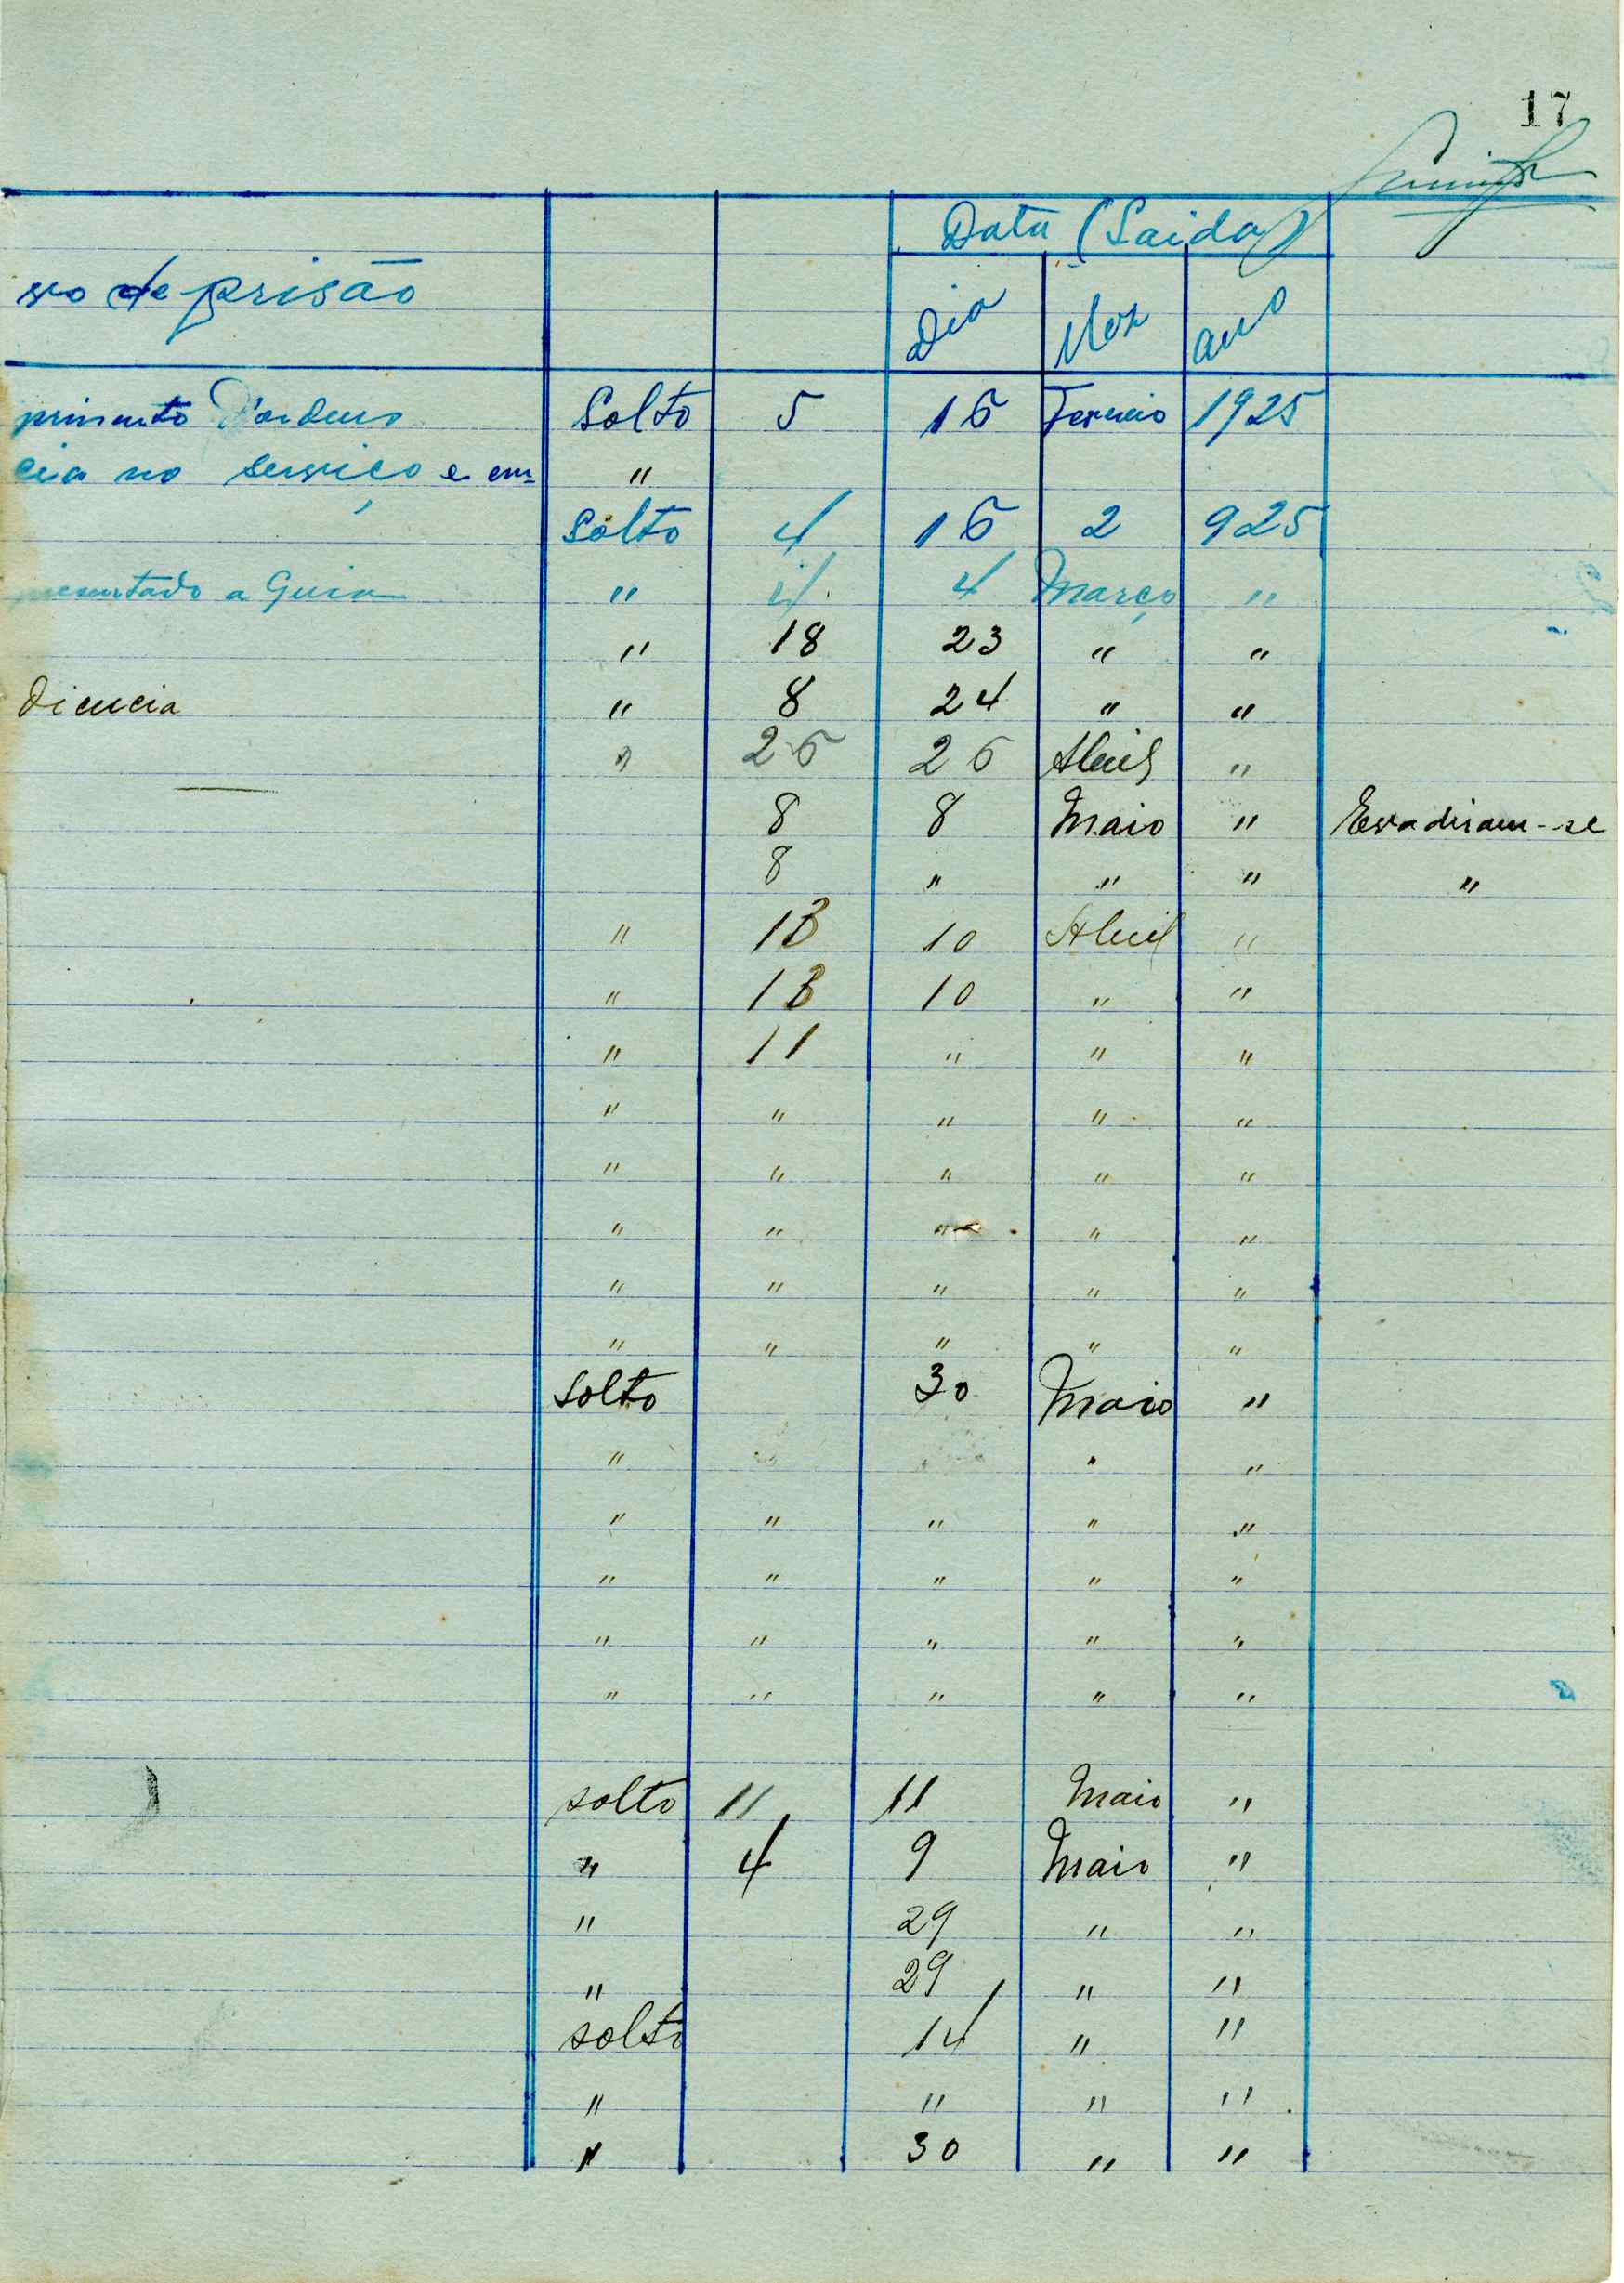 17
Data (Saida)
so de prisão
Dia Mez anno
primento d'ordens Solto 5 16 1925
cia no serviço e em= "
Solto 4 16 2 925
resentado a Guia " 4 4 Março "
" 18 23 " "
diencia " 8 24 " "
" 26 26 Abril "
8 8 Maio " Evadiram-se
8 " " " "
" 13 10 Abril "
" 13 10 " "
" 11 " " "
" " " " "
" " " " "
" " " " "
" " " " "
" " " " "
Solto 30 Maio "
" " "
" " " " "
" " " " "
" " " " "
" " " " "
solto 11 11 Maio "
" 4 9 Maio "
" 29 " "
" 29 " "
solto 14 " "
" " " "
" 30 " "